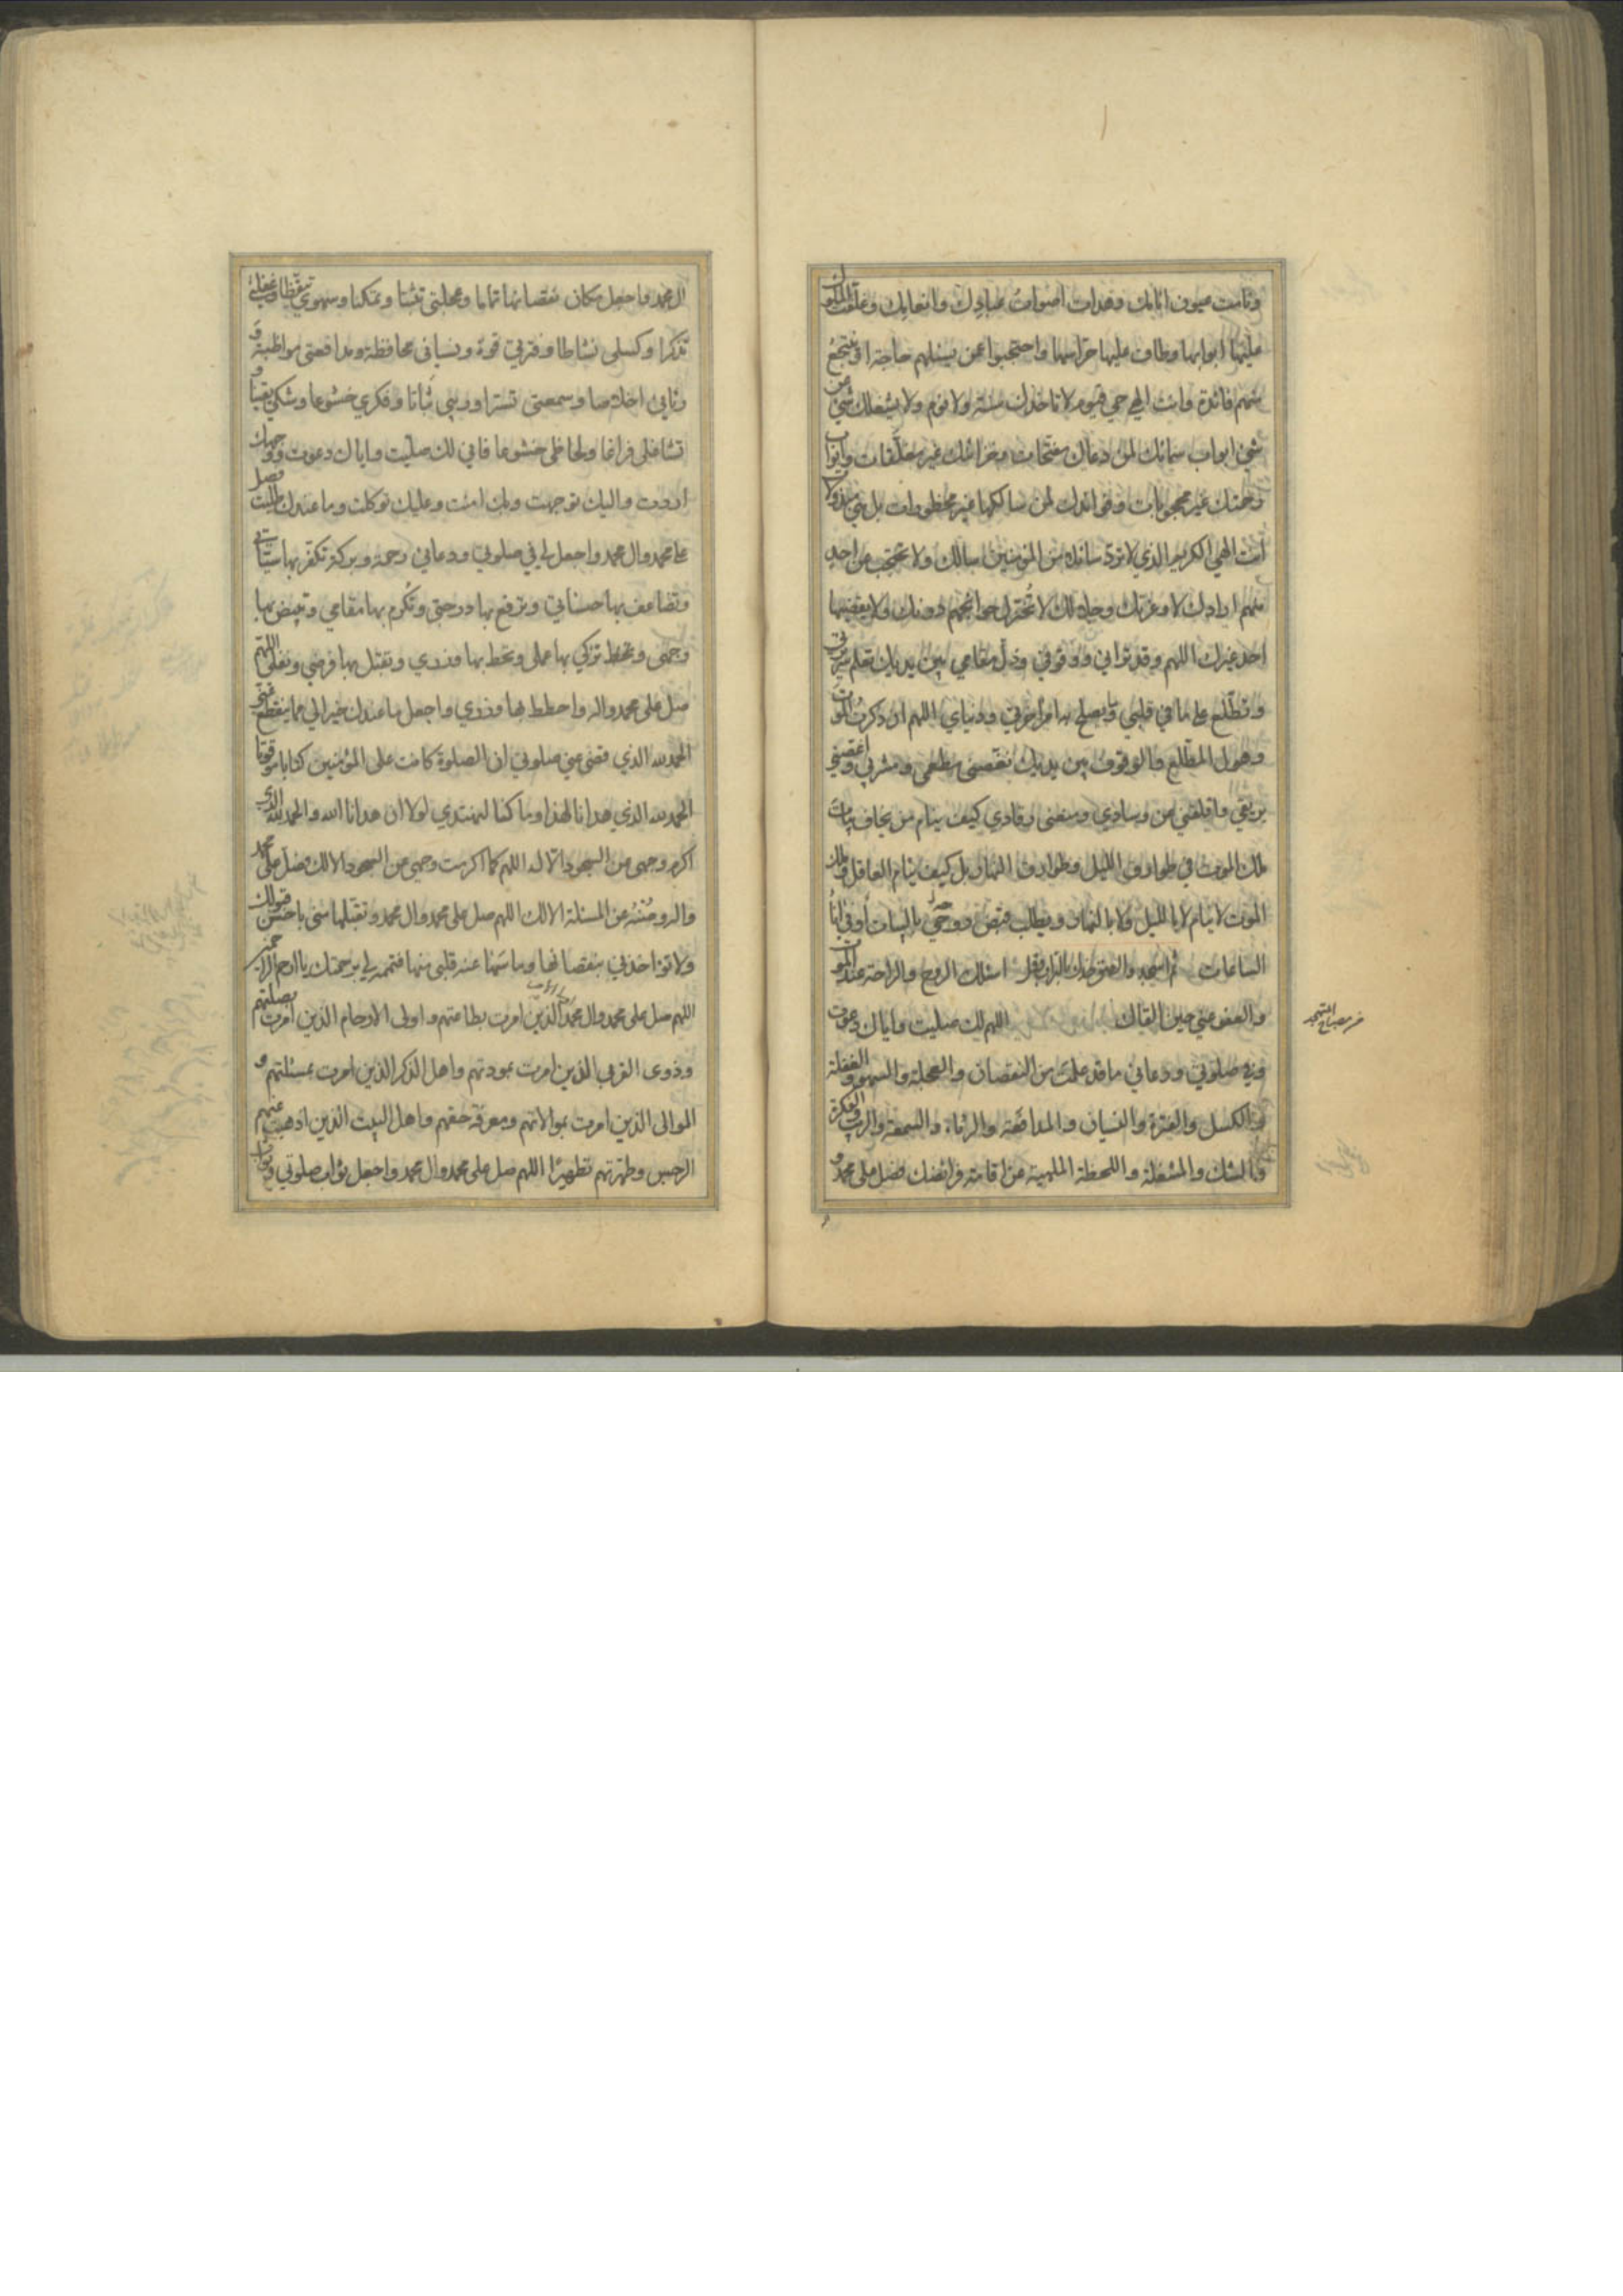 ونامت عيون انامك وهدات اصوات عبادك وانعامك وغلقت الملوك
عليها ابوابها وطاف عليها حراسها واحتجبوا عمن يسئلهم حاجة او ينتجع
منهم فائدة وانت الهي حي قيوم لا تاخذك سنة ولا نوم ولا يشغلك شيء عن
شيء ابواب سمائك لمن دعاك مفتحات وخزائنك غير مغلقات وابواب
رحمتك غير محجوبات وفوائدك لمن سالكها غير محظورات بل هي مبذولات
انت الهي الكريم الذي لا ترد سائلا من المؤمنين سالك ولا تحتجب عن احد
منهم ارادك لا وعزتك وجلالك لا تختزل حوائجهم دونك ولا يقضيها
احد غيرك اللهم وقد تراني ووقوفي وذل مقامي بين يديك تعلم سريرتي
وتطلع على ما في قلبي وما يصلح به امر آخرتي ودنياي اللهم ان ذكرت الموت
وهول المطلع والوقوف بين يديك نغصني مطعمي ومشربي واغصني
بريقي واقلقني عن وسادي ومنعني رقادي كيف ينام من يخاف بيات
ملك الموت في طوارق الليل وطوارق النهار بل كيف ينام العاقل وملك
الموت لا ينام لا بالليل ولا بالنهار ويطلب قبض روحي بالبيات او في اناء
الساعات ثم اسجد والصق خدك بالتراب وقل اسئلك الروح والراحة عند الموت
والعفو عني حين القاك اللهم لك صليت واياك دعوت
وفي صلوتي ودعائي ما قد علمت من النقصان والعجلة والسهو والغفلة
والكسل والفترة والنسيان والمدافعة والرياء والسمعة والريب والفكرة
والشك والمشغلة واللحظة الملهية عن اقامة فرائضك فصل على محمد و
ال محمد واجعل مكان نقصانها تماما وعجلتي تثبتا وتمكنا وسهوي تيقظا وغفلتي
تذكرا وكسلي نشاطا وفترتي قوة ونسياني محافظة ومدافعتي مواظبة و
ريائي اخلاصا وسمعتي تسترا وريبي ثباتا وفكري خشوعا وشكي يقينا و
تشاغلي فراغا ولحاظي خشوعا فاني لك صليت واياك دعوت ووجهك
اردت واليك توجهت وبك امنت وعليك توكلت وما عندك طلبت فصل
على محمد وال محمد واجعل لي في صلوتي ودعائي رحمة وبركة تكفر بها سيئاتي
وتضاعف بها حسناتي وترفع بها درجتي وتكرم بها مقامي وتبيض بها
وجهي وتحط تزكي بها عملي وتحط بها وزري وتقبل بها فرضي ونفلي اللهم
صل على محمد واله واحطط بها وزري واجعل ما عندك خيرا لي مما ينقطع عني
الحمد لله الذي قضى عني صلوتي ان الصلوة كانت على المؤمنين كتابا موقوتا
الحمد لله الذي هدانا لهذا وما كنا لنهتدي لولا ان هدانا الله والحمد لله الذي
اكرم وجهي عن السجود الا له اللهم كما اكرمت وجهي عن السجود الا لك فصل على محمد
واله وصنه عن المسئلة الا لك اللهم صل على محمد وال محمد وتقبلها مني باحسن قبولك
ولا تؤاخذني بنقصانها وما سها عنه قلبي منها فتممه لي برحمتك يا ارحم الراحمين
اللهم صل على محمد وال محمد الذين امرت بطاعتهم واولي الارحام الذين امرت بصلتهم
وذوى القربى الذين امرت بمودتهم واهل الذكر الذين امرت بمسئلتهم و
الموالى الذين امرت بموالاتهم ومعرفة حقهم واهل البيت الذين اذهبت عنهم
الرجس وطهرتهم تطهيرا اللهم صل على محمد وال محمد واجعل ثواب صلوتي وثواب